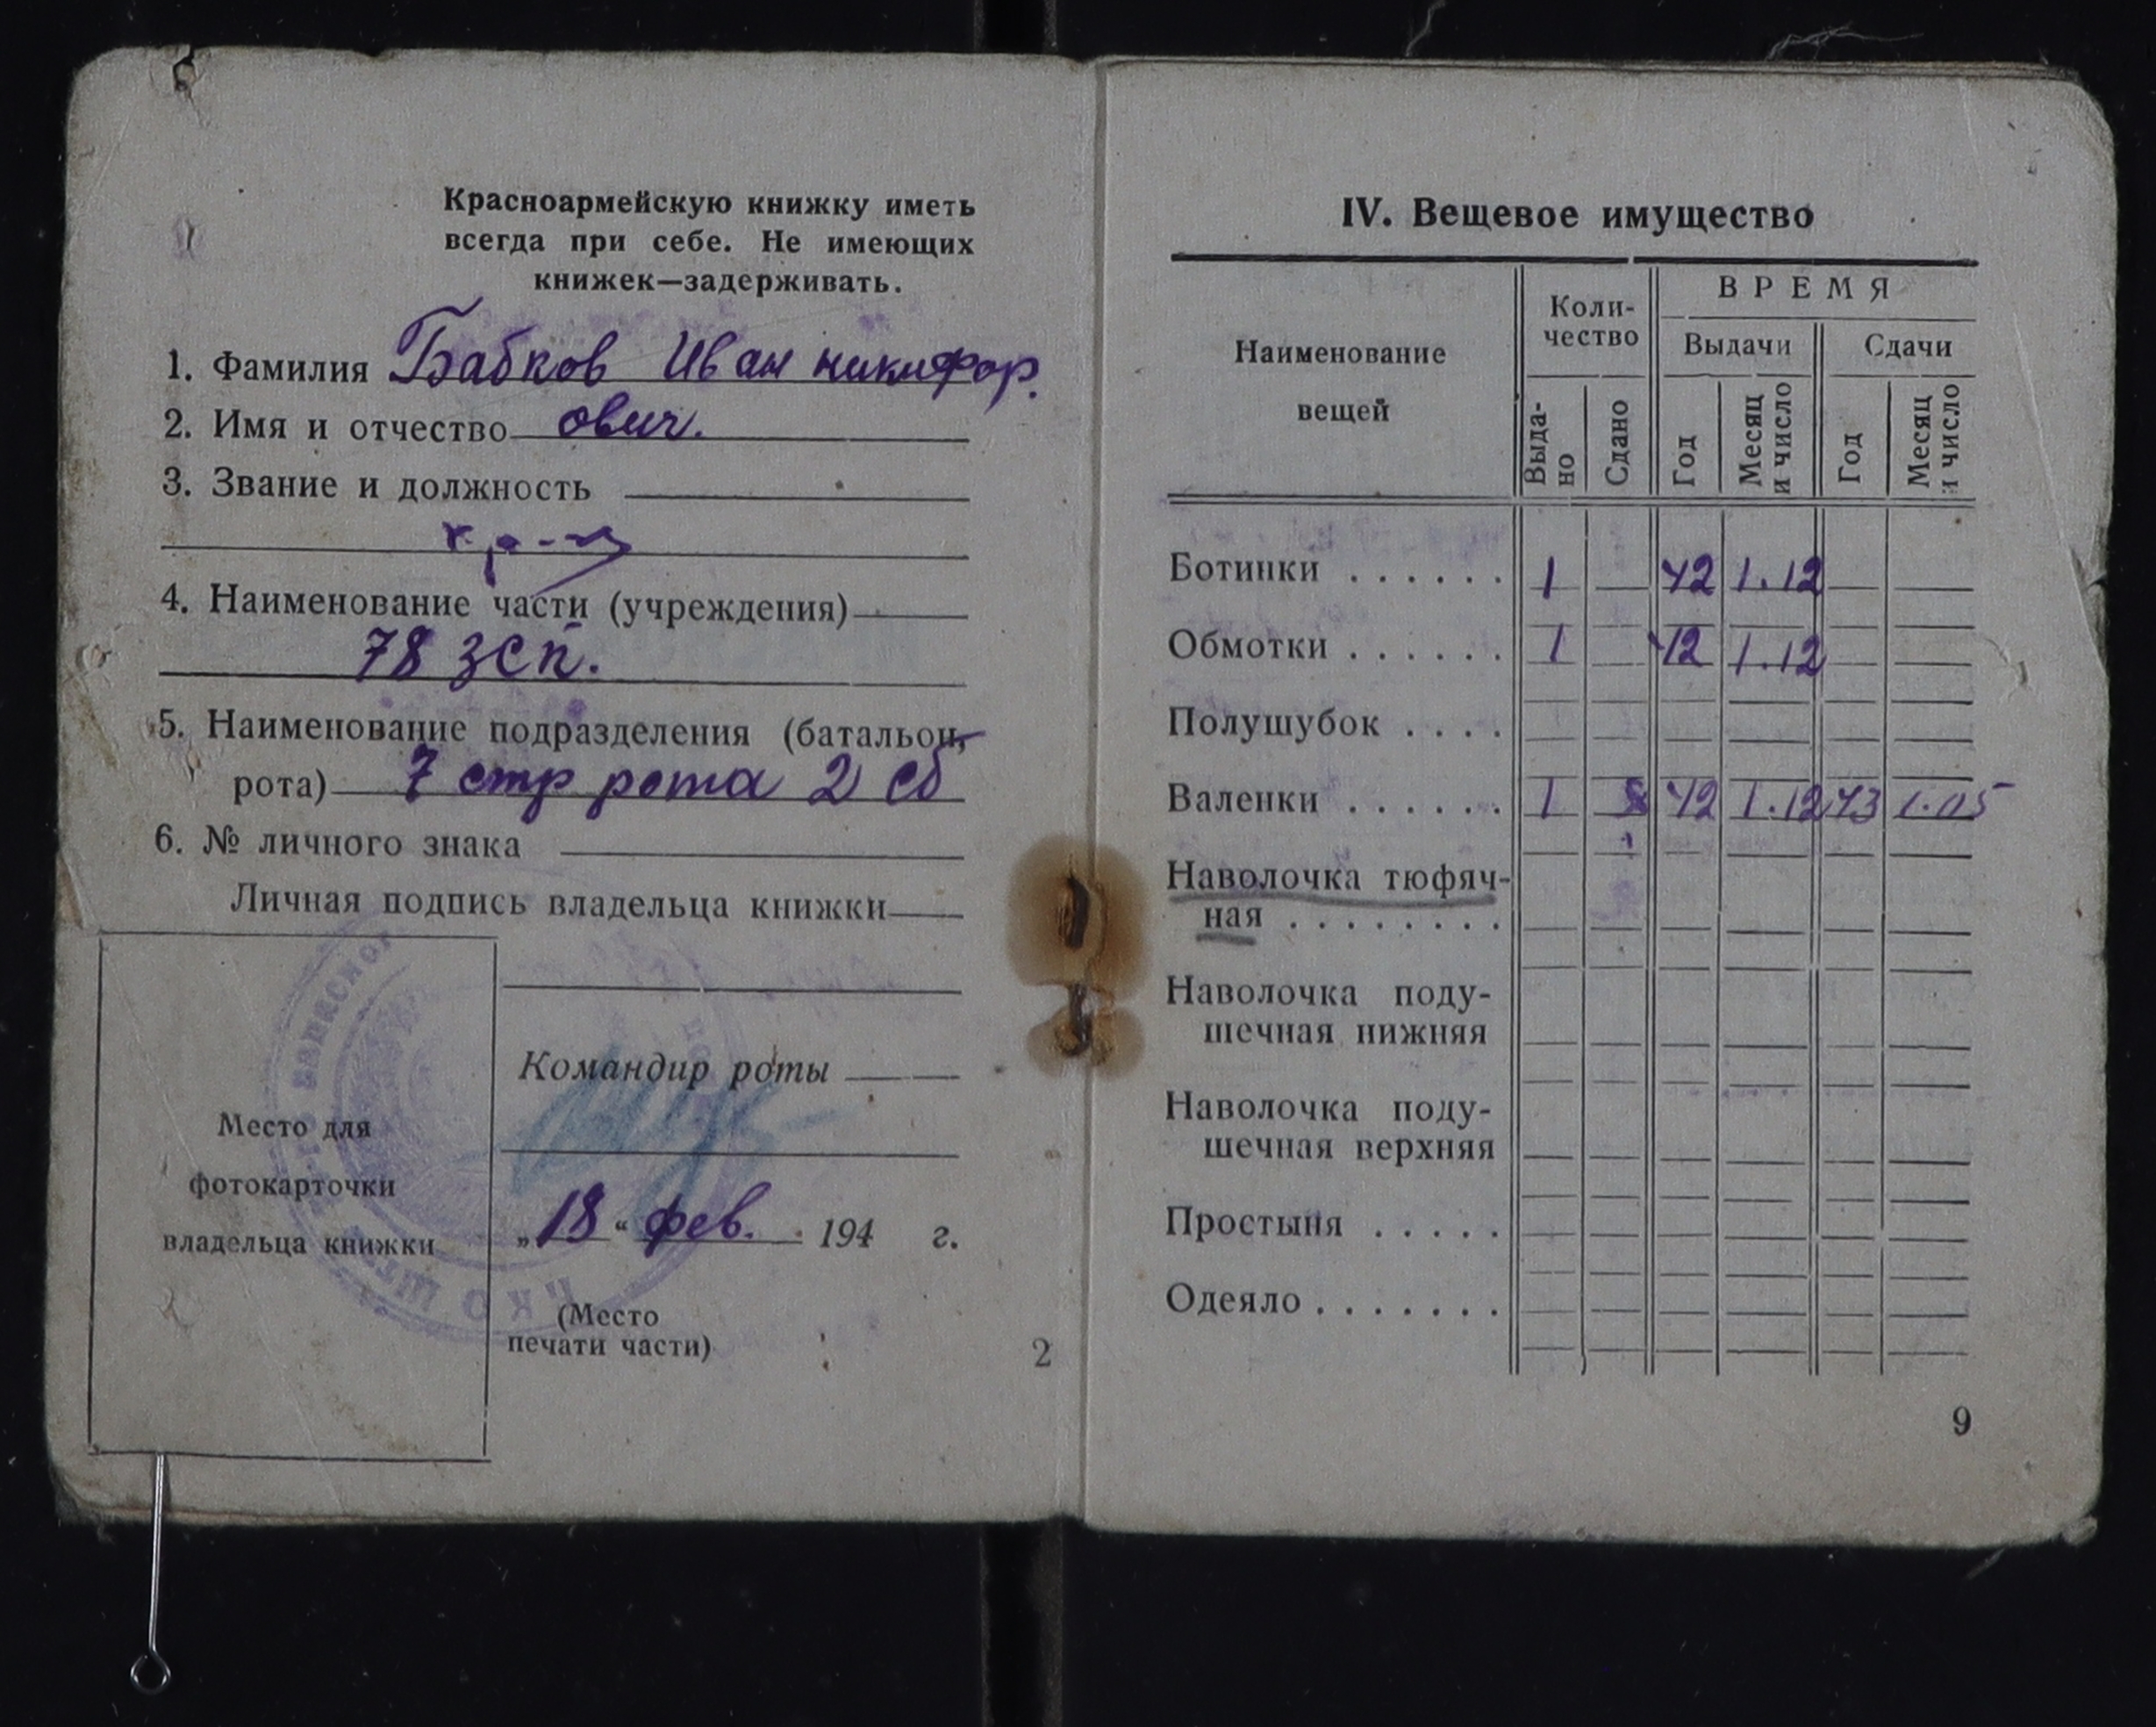 Красноармейскую книжку иметь
всегда при себе. Не имеющих
книжек—задерживать.
1. Фамилия Бабков Иван никифор.
2. Имя и отчество ович.
3. Звание и должность
кр-ц
4. Наименование части (учреждения)
78 зсп.
5. Наименование подразделения (батальон,
рота) 7 стр рота 2 сб
6. № личного знака
Личная подпись владельца книжки
Командир роты
Место для
фотокарточки
владельца книжки
„18“ фев. 194 г.
(Место
печати части)
запасной
НКО
2
IV. Вещевое имущество
Наименование
вещей
Коли-
чество
ВРЕМЯ
Выдачи
Сдачи
Выда-
но
Сдано
Год
Месяц
и число
Год
Месяц
и число
Ботинки . . . . . . 1 42 1.12
Обмотки . . . . . . 1 42 1.12
Полушубок . . . .
Валенки . . . . . . 1 42 1.12 43 1.05
Наволочка тюфяч-
ная . . . . . . . .
Наволочка поду-
шечная нижняя
Наволочка поду-
шечная верхняя
Простыня . . . . .
Одеяло . . . . . . .
9